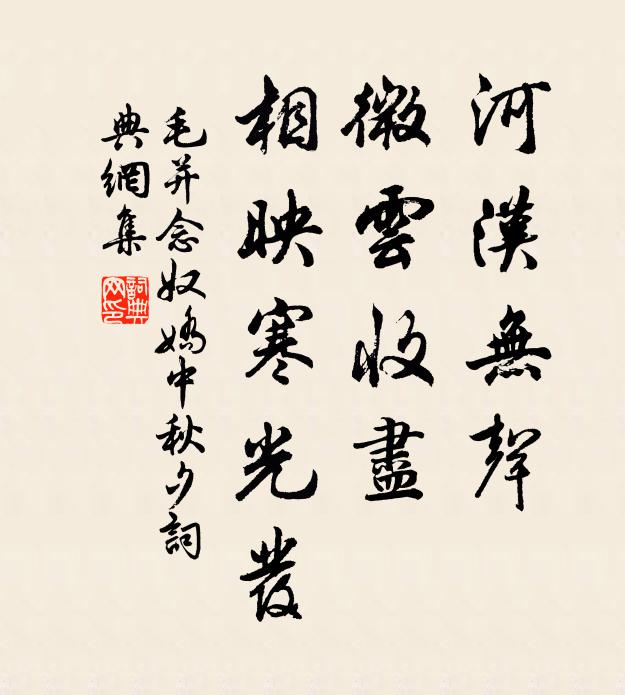 河漢無聲
微雲收盡
相映寒光發
毛并念奴嬌中秋夕詞
典網集
詞典网印